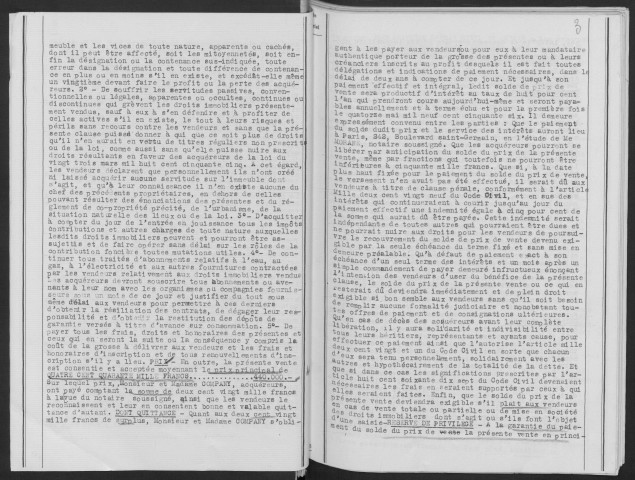 meuble et les vices de toute nature, apparents ou cachés,
dont il peut être affecté, soit les mitoyennetés, soit en-
fin la désignation ou la contenance sus-indiquée, toute
erreur dans la désignation et toute différence de contenan-
ce en plus ou en moins s'il en existe, et excédât-elle même
un vingtième devant faire le profit ou la perte des acqué-
reurs. 2°- De souffrir les servitudes passives, conven-
tionnelles ou légales, apparentes ou occultes, continues ou
discontinues qui grèvent les droits immobiliers présente-
ment vendus, sauf à eux à s'en défendre et à profiter de
celles actives s'il en existe, le tout à leurs risques et
périls sans recours contre les vendeurs et sans que la pré-
sente clause puisse donner à qui que ce soit plus de droits
qu'il n'en aurait en vertu de titres réguliers non prescrits
ou de la loi, comme aussi sans qu'elle puisse nuire aux
droits résultant en faveur des acquéreurs de la loi du
vingt trois mars mil huit cent cinquante cinq. A cet égard,
les vendeurs déclarent que personnellement ils n'ont créé
ni laissé acquérir aucune servitude sur l'immeuble dont
s'agit, et qu'à leur connaissance il n'en existe aucune du
chef des précédents propriétaires, en dehors de celles
pouvant résulter des énonciations des présentes et du rè-
glement de co-propriété, de l'urbanisme, de la
situation naturelle des lieux ou de la loi. 3°- D'acquitter
à compter du jour de l'entrée en jouissance tous les impôts
contributions et autres charges de toute nature auxquelles
lesdits droits immobiliers peuvent et pourront être as-
sujettis et de faire opérer sans délai sur les rôles de la
contribution foncière toutes mutations utiles. 4°- De con-
tinuer tous traités d'abonnements relatifs à l'eau, au
gaz, à l'électricité et aux autres fournitures contractées
par les vendeurs relativement aux droits immobiliers vendus
Les acquéreurs devront souscrire tous abonnements ou ave-
nants à leur nom avec les organismes ou compagnies fournis-
seurs sous un mois de ce jour et justifier du tout sous
même délai aux vendeurs pour permettre à ces derniers
d'obtenir la résiliation des contrats, de dégager leur res-
ponsabilité et d'obtenir la restitution des dépôts de
garantie versés à titre d'avance sur consommation. 5°- De
payer tous les frais, droits et honoraires des présentes et
ceux qui en seront la suite ou la conséquence y compris le
coût de la grosse à délivrer aux vendeurs et les frais et
honoraires d'inscription et de tous renouvellements d'ins-
cription s'il y a lieu. PRIX - En outre, la présente vente
est consentie et acceptée moyennant le prix principal de
QUATRE CENT QUARANTE MILLE FRANCS 440.000.-
Sur lequel prix, Monsieur et Madame COMPANY, acquéreurs
ont payé comptant la somme de deux cent vingt mille francs
à la vue du notaire soussigné, ainsi que les vendeurs le
reconnaissent et leur en consentent bonne et valable quit-
tance d'autant. DONT QUITTANCE - Quant aux deux cent vingt
mille francs de surplus, Monsieur et Madame COMPANY s'obli-
3
gent à les payer aux vendeurs ou pour eux à leur mandataire
authentique porteur de la grosse des présentes ou à leurs
créanciers inscrits au profit desquels il est fait toutes
délégations et indications de paiement nécessaires, dans le
délai de deux ans à compter de ce jour. Et jusqu'à son
paiement effectif et intégral, ledit solde de prix de
vente sera productif d'intérêt au taux de huit pour cent
l'an qui prendront cours aujourd'hui-même et seront paya-
bles annuellement et à terme échu et pour la première fois
le quatorze mai mil neuf cent cinquante six. Il demeure
expressément convenu entre les parties : Que le paiement
du solde dudit prix et le service des intérêts auront lieu
à Paris, 242, Boulevard Saint-Germain, en l'étude de Me
notaire soussigné. Que les acquéreurs pourront se
libérer par anticipation du solde du prix de la présente
vente, même par fractions qui toutefois ne pourront être
inférieures à cinquante mil francs. Que si, à la date
plus haut fixée pour le paiement du solde du prix de vente,
le versement n'avait pas été effectué, il serait dû aux
vendeurs à titre de clause pénale, conformément à l'article
mille deux cent vingt neuf du Code Civil, et en sus des
intérêts qui continueraient à courir jusqu'au jour du
paiement effectif une indemnité égale à cinq pour cent de
la somme qui aurait dû être payée. Cette indemnité serait
indépendante de toutes autres qui pourraient être dues et
ne pourrait nuire aux droits pour les vendeurs de poursui-
vre le recouvrement du solde de prix de vente devenu exi-
gible par la seule échéance du terme fixé et sans mise en
demeure préalable. Qu'à défaut de paiement exact à son
échéance d'un seul terme des intérêts et un mois après un
simple commandement de payer demeuré infructueux énonçant
l'intention des vendeurs d'user du bénéfice de la présente
clause, le solde du prix de la présente vente ou ce qui en
resterait dû deviendra immédiatement et de plein droit
exigible si bon semble aux vendeurs sans qu'il soit besoin
de remplir aucune formalité judiciaire et nonobstant tou-
tes offres de paiement et de consignations ultérieures.
Qu'en cas de décès des acquéreurs avant leur complète
libération, il y aura solidarité et indivisibilité entre
tous leurs héritiers, représentants et ayants cause, pour
effectuer ce paiement ainsi que l'autorise l'article mille
deux cent vingt et un du Code Civil en sorte que chacun
d'eux sera tenu personnellement, solidairement avec les
autres et hypothécairement de la totalité de la dette. Et
que dans ce cas les significations prescrites par l'ar-
ticle huit cent soixante dix sept du Code Civil devenient
nécessaires les frais en seraient supportés par ceux à qui
elles seraient faites. Enfin, que le solde du prix de la
présente vente deviendra exigible s'il plaît aux vendeurs
en cas de vente totale ou partielle ou de mise en société
des droits immobiliers dont s'agit ou s'ils font l'objet
d'une saisie- RESERVE DE PRIVILEGE - A la garantie du paie-
ment du solde du prix de la présente vente en princi-